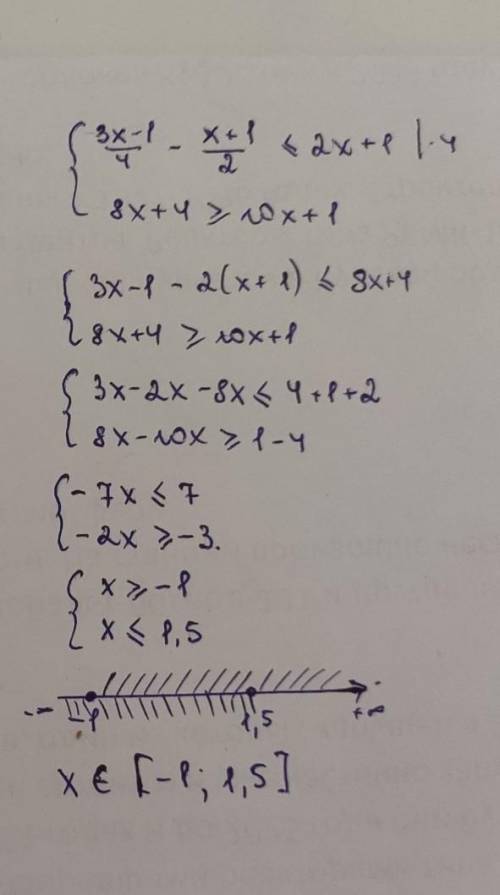 { (3x-1)/4 - (x+1)/2 ≤ 2x+1 |·4
8x+4 ≥ 10x+1
{ 3x-1 - 2(x+1) ≤ 8x+4
8x+4 ≥ 10x+1
{ 3x-2x-8x ≤ 4+1+2
8x-10x ≥ 1-4
{ -7x ≤ 7
-2x ≥ -3.
{ x ≥ -1
x ≤ 1,5
-∞ -1 1,5 +∞
x ∈ [-1; 1,5]